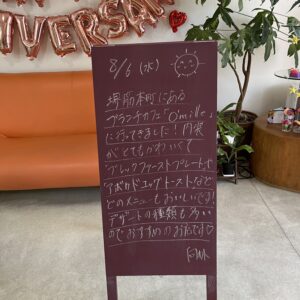 VERSAR
8/6 (水)
堺筋本町にある
ブランチカフェ「O'mille」
に行ってきました！内装
がとてもかわいくて
ブレックファーストプレートや
アボカドエッグトーストなど
どのメニューもおいしいです！
デザートの種類も多い
のでおすすめのお店です♡